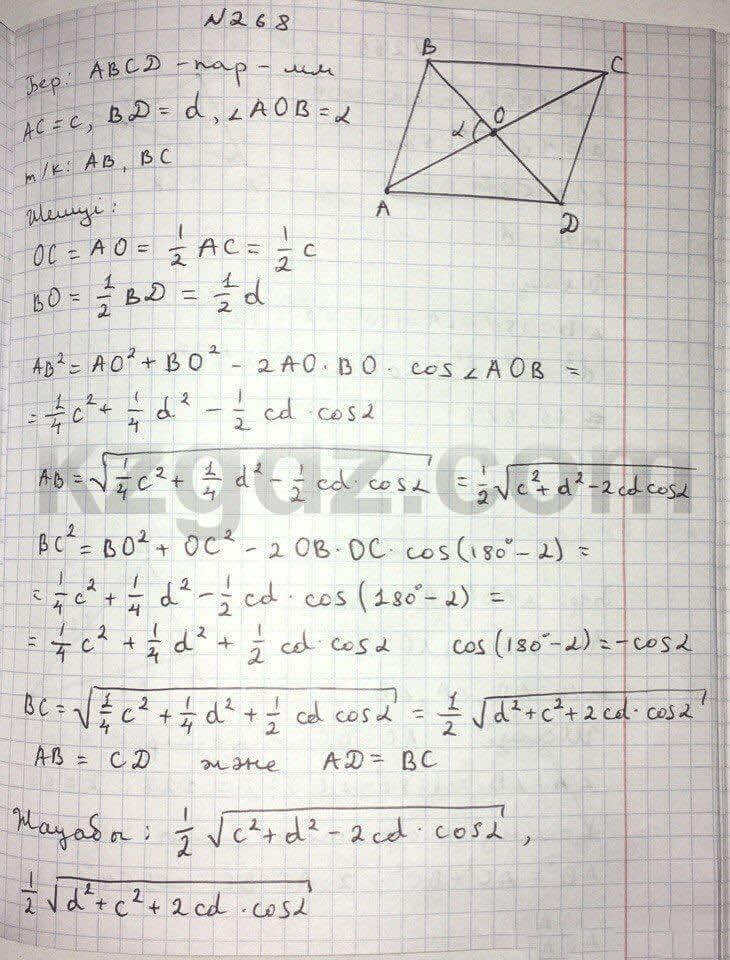 N268
Бер: ABCD - пар-мм
AC = c, BD = d, ∠AOB = α
т/к: AB, BC
Шешуі:
OC = AO = 1/2 AC = 1/2 c
BO = 1/2 BD = 1/2 d
AB² = AO² + BO² - 2AO·BO·cos∠AOB =
= 1/4 c² + 1/4 d² - 1/2 cd·cosα
AB = √(1/4 c² + 1/4 d² - 1/2 cd·cosα) = 1/2 √(c² + d² - 2cd cosα)
BC² = BO² + OC² - 2OB·OC·cos(180° - α) =
= 1/4 c² + 1/4 d² - 1/2 cd·cos(180° - α) =
= 1/4 c² + 1/4 d² + 1/2 cd·cosα cos(180° - α) = -cosα
BC = √(1/4 c² + 1/4 d² + 1/2 cd cosα) = 1/2 √(d² + c² + 2cd·cosα)
AB = CD және AD = BC
Жауабы: 1/2 √(c² + d² - 2cd·cosα),
1/2 √(d² + c² + 2cd·cosα)
B
C
O
α
A
D
kzgdz.com